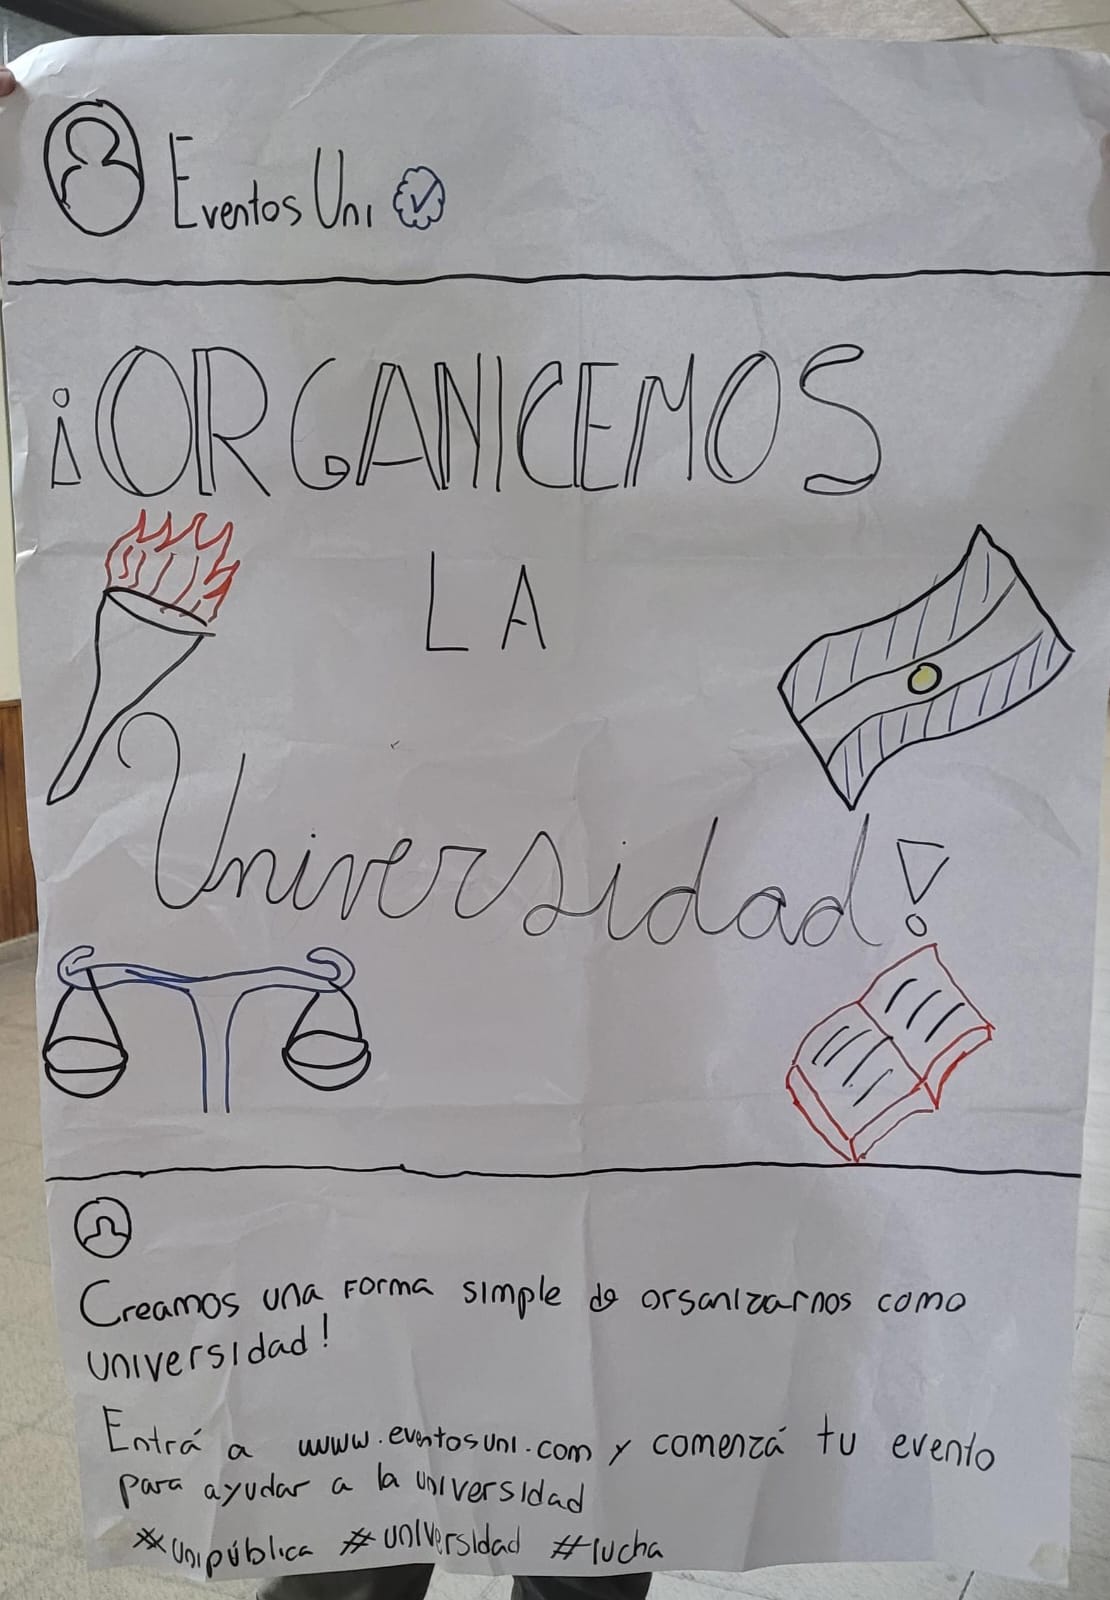 Eventos Uni
¡ORGANICEMOS
LA
Universidad!
Creamos una forma simple de organizarnos como
universidad!
Entrá a www.eventosuni.com y comenzá tu evento
para ayudar a la universidad
#unipública #universidad #lucha